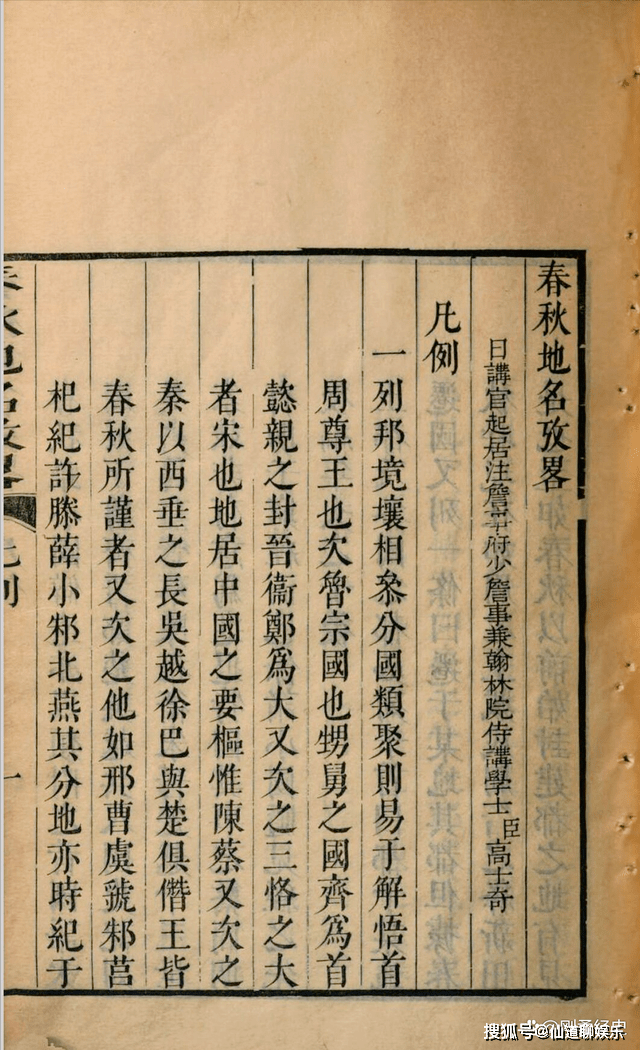 春秋地名攷畧
日講官起居注詹事府少詹事兼翰林院侍講學士臣高士奇
凡例
一列邦境壤相叅分國類聚則易于解悟首
周尊王也次魯宗國也甥舅之國齊爲首
懿親之封晉衞鄭爲大又次之三恪之大
者宋也地居中國之要樞惟陳蔡又次之
秦以西垂之長吳越徐巴與楚俱僭王皆
春秋所謹者又次之他如邢曹虞虢邾莒
杞紀許滕薛小邾北燕其分地亦時紀于
春秋地名攷畧
凡例
一
搜狐号@仙道聊娱乐